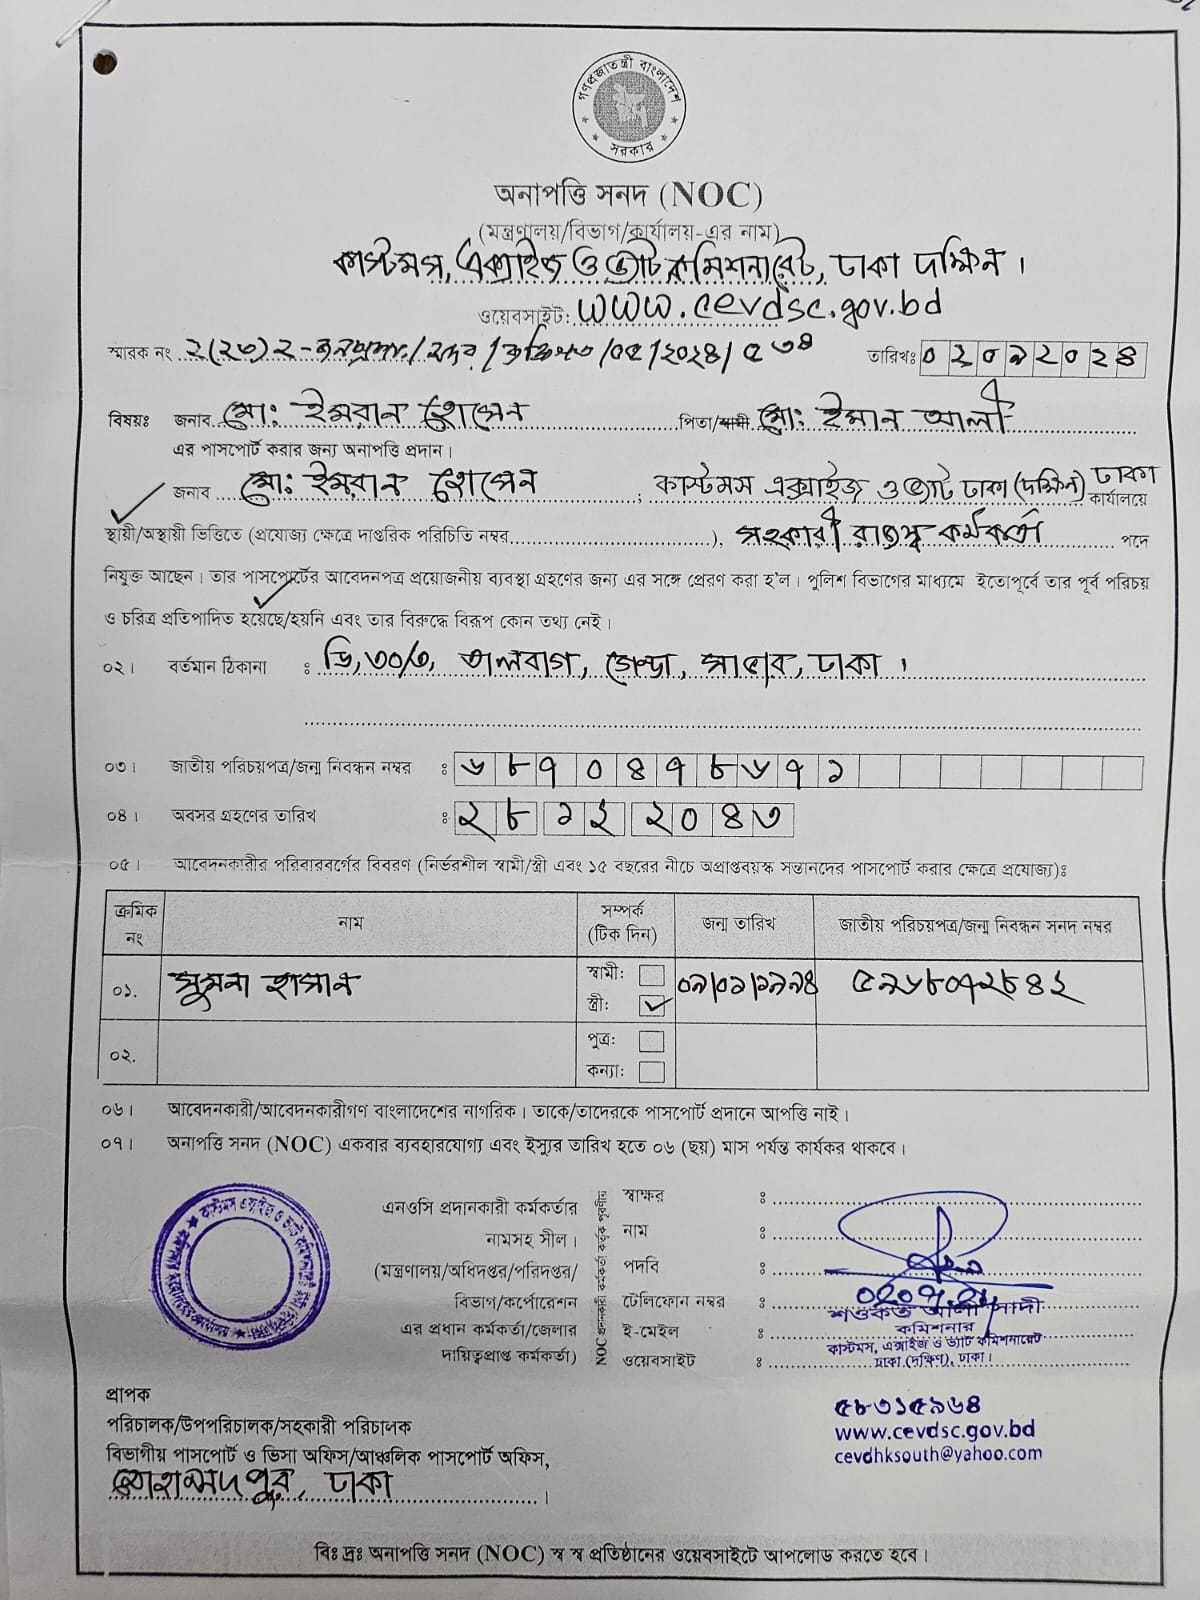 গণপ্রজাতন্ত্রী বাংলাদেশ
সরকার
অনাপত্তি সনদ (NOC)
(মন্ত্রণালয়/বিভাগ/কার্যালয়-এর নাম)
কাস্টমস, এক্সাইজ ও ভ্যাট কমিশনারেট, ঢাকা দক্ষিন।
ওয়েবসাইট: www.cevdsc.gov.bd
স্মারক নং ২(২৩)২-জনপ্রশা:/সদর/ /০৫/২০২৪/৫৩৪ তারিখঃ ০২০৯২০২৪
বিষয়ঃ জনাব মো: ইমরান হোসেন পিতা/স্বামী মো: ইমান আলী
এর পাসপোর্ট করার জন্য অনাপত্তি প্রদান।
জনাব মো: ইমরান হোসেন ; কাস্টমস এক্সাইজ ও ভ্যাট ঢাকা (দক্ষিন) ঢাকা কার্যালয়ে
স্থায়ী/অস্থায়ী ভিত্তিতে (প্রযোজ্য ক্ষেত্রে দাপ্তরিক পরিচিতি নম্বর..............................), সহকারী রাজস্ব কর্মকর্তা পদে
নিযুক্ত আছেন। তার পাসপোর্টের আবেদনপত্র প্রয়োজনীয় ব্যবস্থা গ্রহণের জন্য এর সঙ্গে প্রেরণ করা হ'ল। পুলিশ বিভাগের মাধ্যমে ইতোপূর্বে তার পূর্ব পরিচয়
ও চরিত্র প্রতিপাদিত হয়েছে/হয়নি এবং তার বিরুদ্ধে বিরূপ কোন তথ্য নেই।
০২। বর্তমান ঠিকানা : ডি, ৩০/৩, তালবাগ, গেন্ডা, সাভার, ঢাকা।
০৩। জাতীয় পরিচয়পত্র/জন্ম নিবন্ধন নম্বর : ৬৮৭০৪৭৮৬৭১
০৪। অবসর গ্রহণের তারিখ : ২৮ ১২ ২০৪৩
০৫। আবেদনকারীর পরিবারবর্গের বিবরণ (নির্ভরশীল স্বামী/স্ত্রী এবং ১৫ বছরের নীচে অপ্রাপ্তবয়স্ক সন্তানদের পাসপোর্ট করার ক্ষেত্রে প্রযোজ্য)ঃ
ক্রমিক নং নাম সম্পর্ক (টিক দিন) জন্ম তারিখ জাতীয় পরিচয়পত্র/জন্ম নিবন্ধন সনদ নম্বর
০১. সুমনা হাসান স্বামী: স্ত্রী: ✓ ০৯/০১/১৯৯৪ ৫৯৬৮০৭২৮৪২
০২. পুত্র: কন্যা:
০৬। আবেদনকারী/আবেদনকারীগণ বাংলাদেশের নাগরিক। তাকে/তাদেরকে পাসপোর্ট প্রদানে আপত্তি নাই।
০৭। অনাপত্তি সনদ (NOC) একবার ব্যবহারযোগ্য এবং ইস্যুর তারিখ হতে ০৬ (ছয়) মাস পর্যন্ত কার্যকর থাকবে।
এনওসি প্রদানকারী কর্মকর্তার
নামসহ সীল।
(মন্ত্রণালয়/অধিদপ্তর/পরিদপ্তর/
বিভাগ/কর্পোরেশন
এর প্রধান কর্মকর্তা/জেলার
দায়িত্বপ্রাপ্ত কর্মকর্তা)
স্বাক্ষর ঃ
নাম ঃ
পদবি ঃ
টেলিফোন নম্বর ঃ
ই-মেইল ঃ
ওয়েবসাইট ঃ
শওকত আলী সাদী
কমিশনার
কাস্টমস, এক্সাইজ ও ভ্যাট কমিশনারেট
ঢাকা (দক্ষিণ), ঢাকা।
৫৮৩১৫৯৬৪
www.cevdsc.gov.bd
cevdhksouth@yahoo.com
প্রাপক
পরিচালক/উপপরিচালক/সহকারী পরিচালক
বিভাগীয় পাসপোর্ট ও ভিসা অফিস/আঞ্চলিক পাসপোর্ট অফিস,
মোহাম্মদপুর, ঢাকা।
বিঃ দ্রঃ অনাপত্তি সনদ (NOC) স্ব স্ব প্রতিষ্ঠানের ওয়েবসাইটে আপলোড করতে হবে।